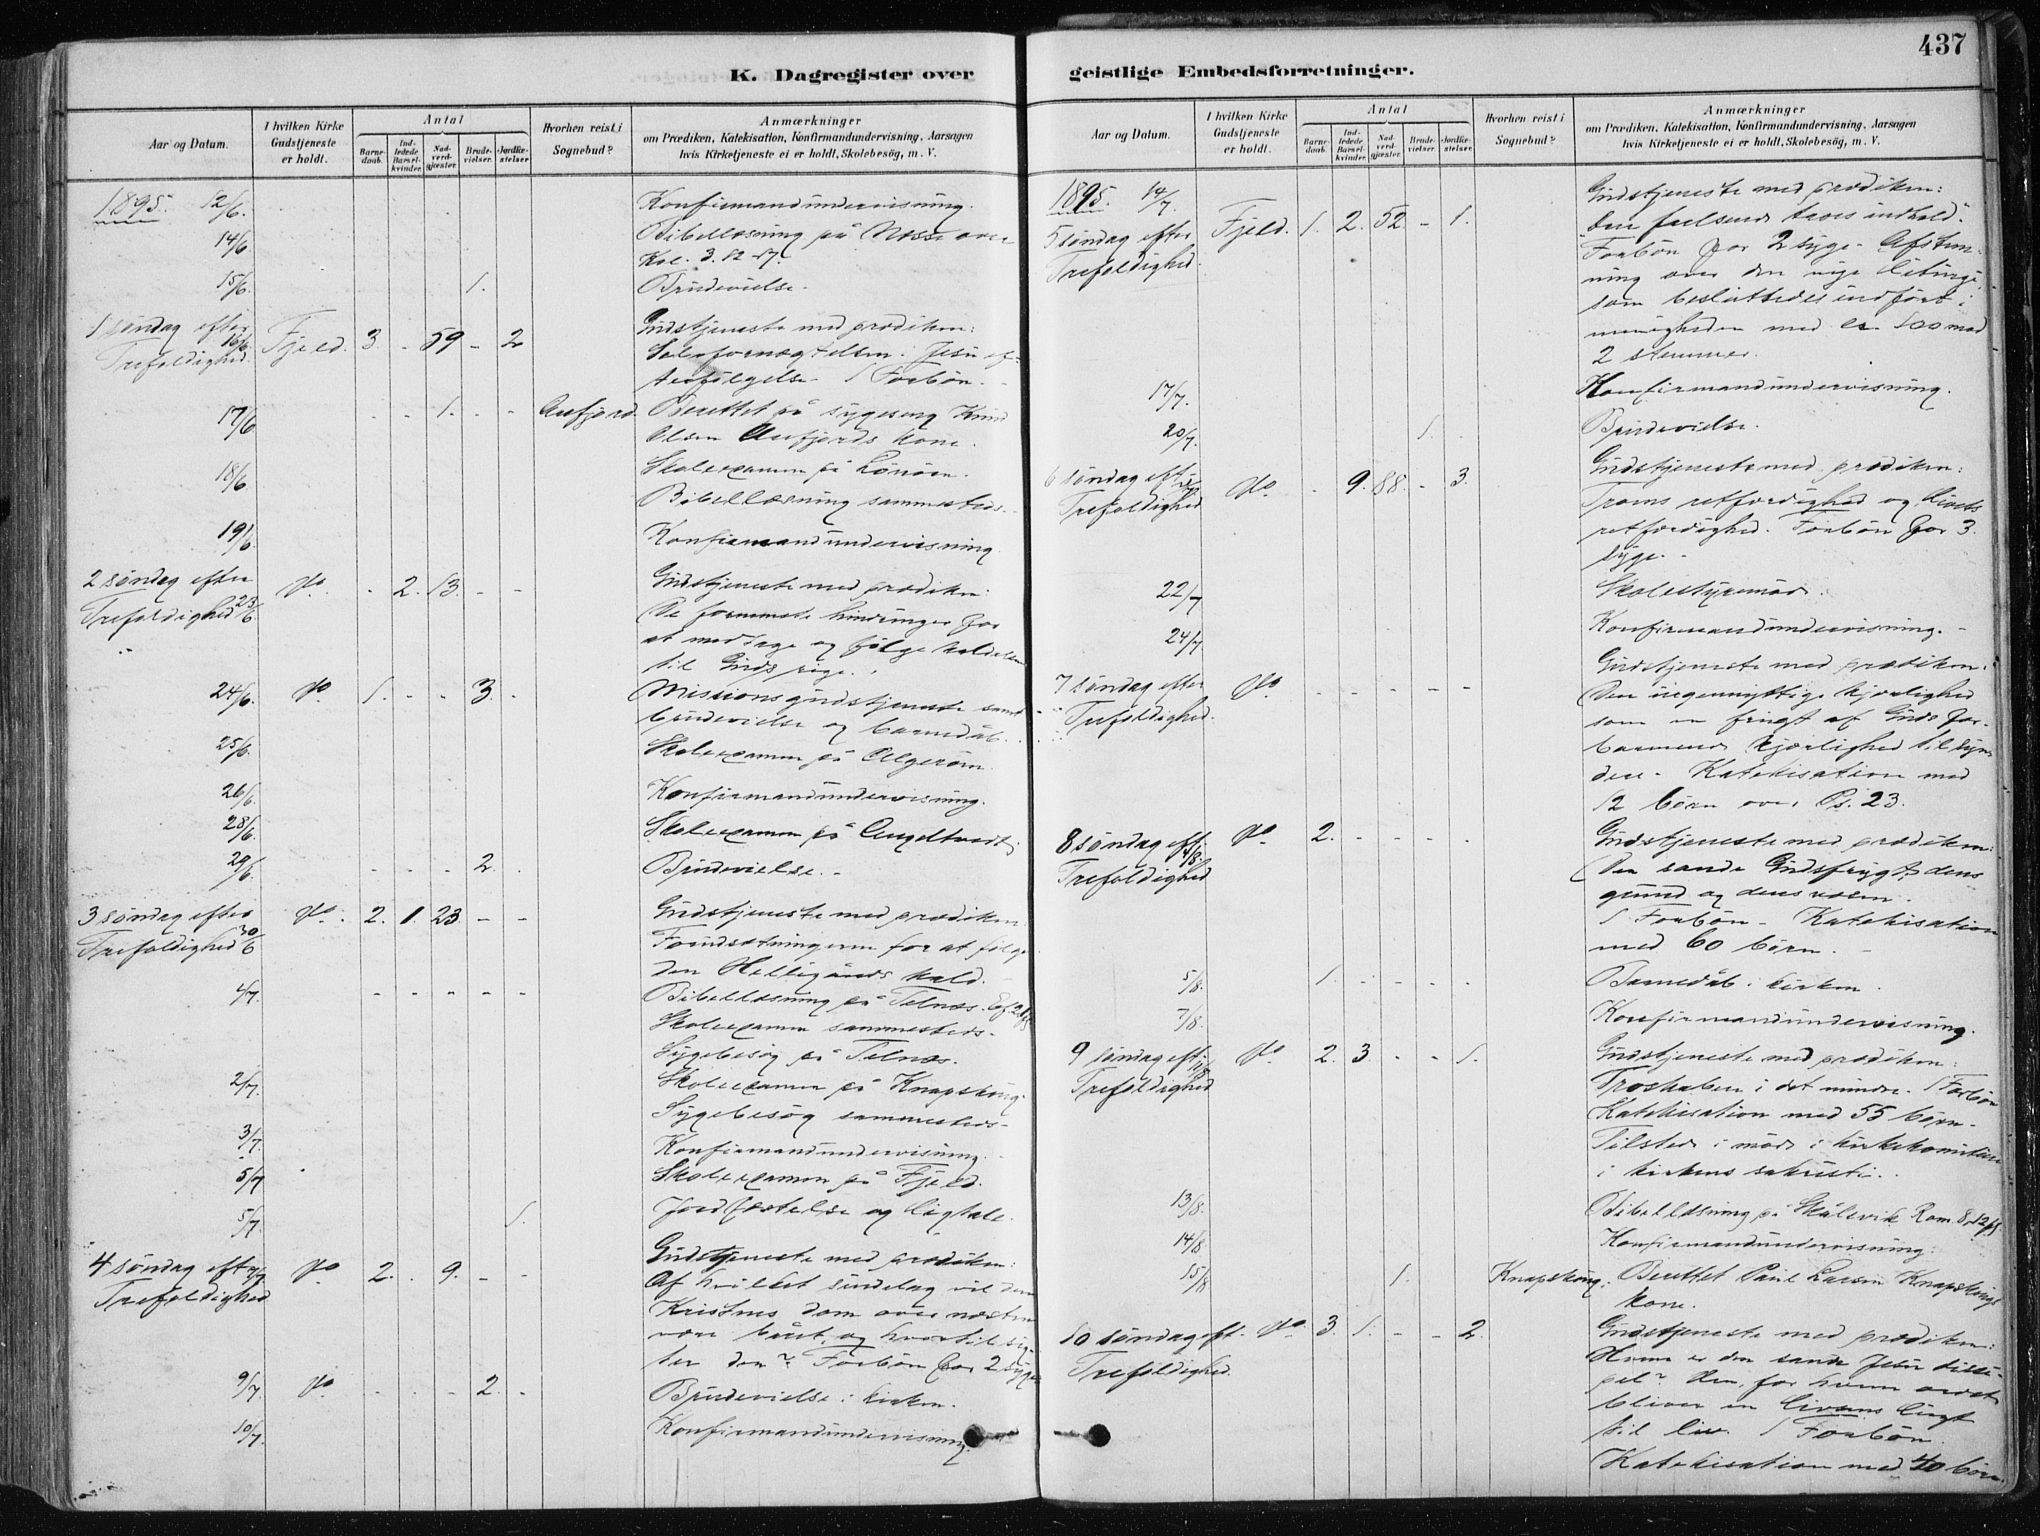 437
K. Dagregister over geistlige Embedsforretninger.
Aar og Datum.
I hvilken Kirke Gudstjeneste er holdt.
Antal
Barnedaab.
Indledede Barselkvinder.
Nadverdgjæster.
Brudevielser.
Jordfæstelser.
Hvorhen reist i Sognebud?
Anmærkninger
om Prædiken, Katekisation, Konfirmandundervisning, Aarsagen
hvis Kirketjeneste ei er holdt, Skolebesøg, m. V.
1895. 12/6. Konfirmandundervisning.
14/6 Bibellæsning på Nesse over
Kol. 3. 12-17.
15/6 1. Brudevielse.
1 søndag efter Gudstjeneste med prædiken:
Trefoldighed 16/6 Fjeld. 3. - 59 - 2 Selvfornægtelsen i Jesu ef-
terfølgelse. 1 Forbøn.
17/6 - - 1. - - Berettet på sygeseng Knud
Olsen kone.
18/6 Skoleexamen på
Bibellæsning sammesteds.
19/6 Konfirmandundervisning
2 søndag efter do. - 2. 13. - - Gudstjeneste med prædiken:
Trefoldighed 23/6 De fornemste hindringer for
at modtage og følge kaldelsen
til Guds rige.
24/6. do 1. - - 3. - Missionsgudstjeneste samt
brudevielse og barnedåb.
25/6 Skoleexamen på Algerøen.
26/6. Konfirmandundervisning.
28/6 Skoleexamen på Angeltveit
29/6 - - - 2. . Brudevielse. -
3 søndag efter do. 2. 1. 23. - - Gudstjeneste med prædiken.
Trefoldighed 30/6 Forudsætningerne for at følge
den Helligånds kald.
1/7. - - - - - Bibellæsning på Telnæs.
Skoleexamen sammesteds.
Sygebesøg på Telnæs.
2/7. Skoleexamen på Knapskoug
Sygebesøg sammesteds.
3/7. Konfirmandundervisning.
5/7 Skoleexamen på Fjeld.
5/7. 1. Jordfæstelse og ligtale.
4 søndag eft. 7/7 do 2. . 9. - - Gudstjeneste med prædiken:
Trefoldighed Af hvilket sindelag vil den
Kristnes dom over næsten
være båret, og hvortil sig-
ter den? Forbøn for 2 syge
9/7. do. - - - 2. - Brudevielse i kirken.
10/7. Konfirmandundervisning.
1895. 14/7. Gudstjeneste med prædiken:
5 søndag efter Fjeld. 1. 2. 52. - 1. Den frelsende troes indhold.
Trefoldighed. Forbøn for 2 syge. Afstem-
ning over den nye liturgi,
som besluttedes indført i
menigheden med 100 mod
2 stemmer.
17/7. Konfirmandundervisning.
20/7. 1. . Brudevielse.
6 søndag eft. do. - 9. 88. - 3. Gudstjeneste med prædiken:
Trefoldighed Troens retfærdighed og livets
retfærdighed. Forbøn for 3
syge. -
22/7 Skolestyremøde.
24/7 Konfirmandundervisning. -
Gudstjeneste med prædiken:
7 søndag efter do - - - - - Den uegennyttige kjærlighed
Trefoldighed. som en frugt af Guds for-
barmende kjærlighed til syn-
dere. Katekisation med
12 børn over Ps. 23.
8 søndag eft. 4/8. do. 2. - - - . Gudstjeneste med prædiken:
Trefoldighed Den sande Gudsfrygt, dens
grund og dens væsen.
1 Forbøn. Katekisation
med 60 børn. -
5/8. 1. - - - . Barnedåb i kirken.
7/8. Konfirmandundervisning.
9 søndag eft. 11/8 do. 2. 3 - - 1. Gudstjeneste med prædiken:
Trefoldighed Troskaben i det mindre. 1 Forbøn
Katekisation med 55 børn.
Tilsted i møde i kirkekomiteen
i kirkens sakristi.
13/8. Bibellæsning på Skålevik Rom. 8,
14/8. Konfirmandundervisning.
15/8 1. Knapskoug. Berettet Paul Larsen Knapskougs
kone.
10 søndag eft. do. 3. 1. - - 2. Gudstjeneste med prædiken:
Trefoldighed. Hvem er den sande Jesu disci-
pel? Den, for hvem ordet
bliver en livsens lugt
til liv. 1 Forbøn.
Katekisation med 40 børn.